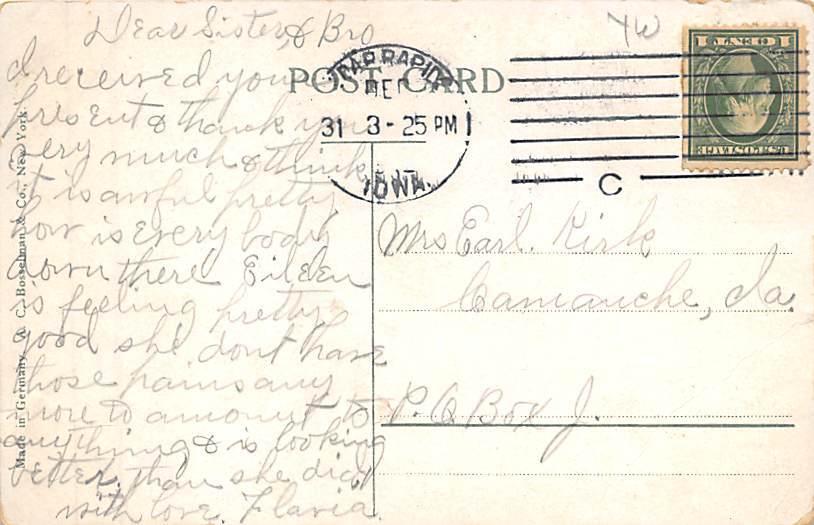 Dear Sister & Bro
I received your
present & thank you
very much & think
it is awful pretty
how is every body
down there Eileen
is feeling pretty
good she dont have
those pains any
more to amount to
anything & is looking
better, than she did,
with love. Flavia.
POST CARD
CEDAR RAPIDS
DEC
31 3-25 PM
IOWA.
C
YW
1 CENT 1
U.S. POSTAGE
Mrs Earl. Kirk
Camanche, Ia.
P.O. Box J.
Made in Germany A. C. Bosselman & Co., New York